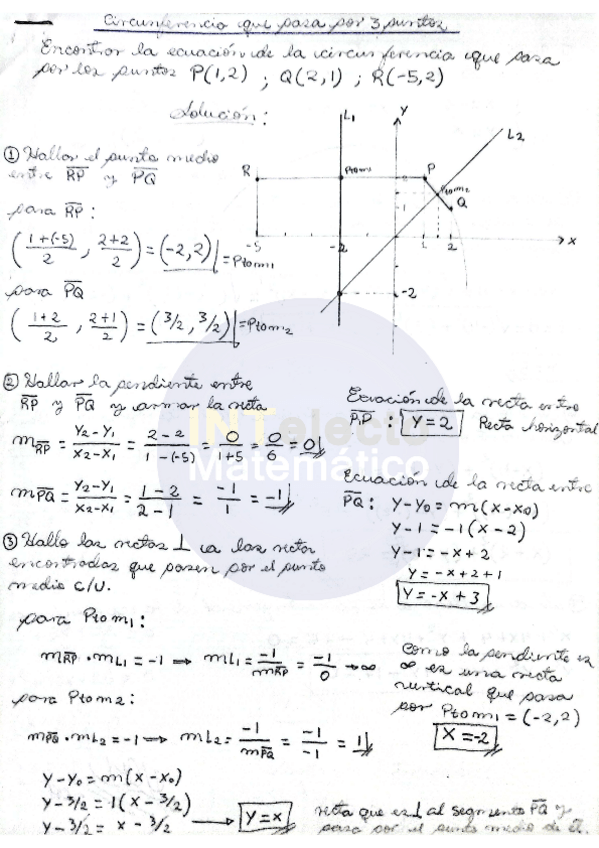 Circunferencia que pasa por 3 puntos
Encontrar la ecuación de la circunferencia que pasa
por los puntos P(1,2) ; Q(2,1) ; R(-5,2)
Solución:
① Hallar el punto medio
entre RP y PQ
para RP:
(1+(-5)/2 , 2+2/2) = (-2,2) = Ptom1
para PQ
(1+2/2 , 2+1/2) = (3/2, 3/2) = Ptom2
L1
Y
L2
R
Ptom1
2
P
Ptom2
1
Q
-5
-2
1
2
X
-2
② Hallar la pendiente entre
RP y PQ y armar la recta
mRP = Y2-Y1/X2-X1 = 2-2/1-(-5) = 0/1+5 = 0/6 = 0
mPQ = Y2-Y1/X2-X1 = 1-2/2-1 = -1/1 = -1
Ecuación de la recta entre
RP: Y=2 Recta horizontal
Ecuación de la recta entre
PQ: Y-Y0=m(X-X0)
Y-1=-1(X-2)
Y-1=-X+2
Y=-X+2+1
Y=-X+3
INTelecto
Matemático
③ Hallo las rectas ⊥ a las rectas
encontradas que pasen por el punto
medio c/u.
para Ptom1:
mRP · mL1 = -1 → mL1 = -1/mRP = -1/0 → ∞
Como la pendiente es
∞ es una recta
vertical que pasa
por Ptom1=(-2,2)
X=-2
para Ptom2:
mPQ · mL2 = -1 → mL2 = -1/mPQ = -1/-1 = 1
Y-Y0=m(X-X0)
Y-3/2=1(X-3/2)
Y-3/2=X-3/2 → Y=X
recta que es ⊥ al segmento PQ y
pasa por el punto medio de él.